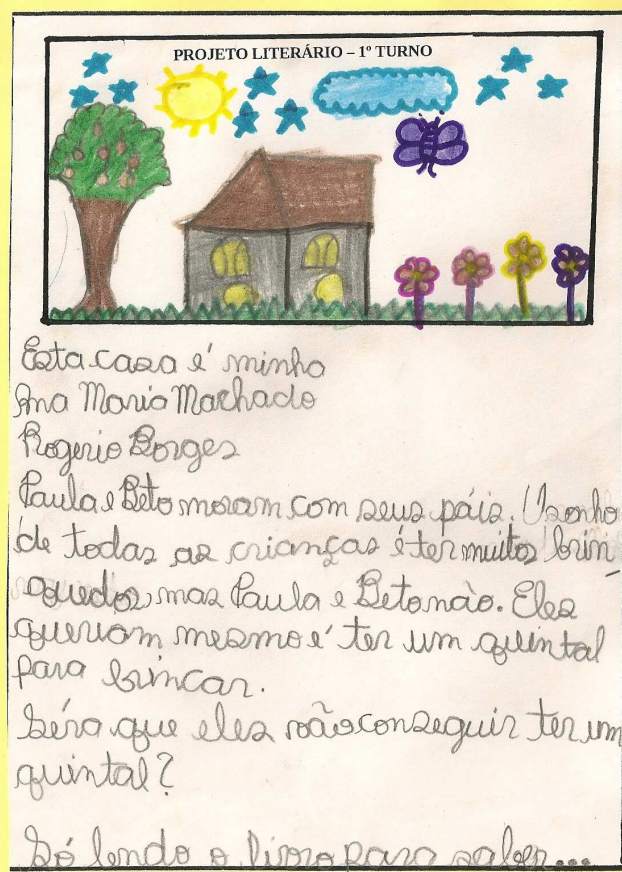 PROJETO LITERÁRIO – 1º TURNO
Esta casa é minha
Ana Maria Machado
Rogerio Borges
Paula e Beto moram com seus páis. O sonho
de todas as crianças é ter muitos brin
quedos, mas Paula e Beto não. Eles
queriam mesmo é ter um quintal
para brincar.
Séra que eles vão conseguir ter um
quintal?
Só lendo o livro para saber...